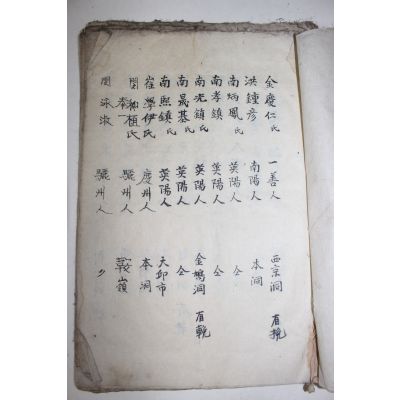 金慶仁氏 一善人 西京洞 有輓
洪鍾彦 南陽人 本洞
南炳鳳氏 英陽人 仝
南孝鎮 英陽人 仝
南光鎮氏 英陽人 金鶴洞 有輓
南晟基氏 英陽人 仝
南熙鎮氏 英陽人 大邱市
崔學伊氏 慶州人 本洞
閔植氏 驪州人 鞍嶺
閔泳 驪州人 〃